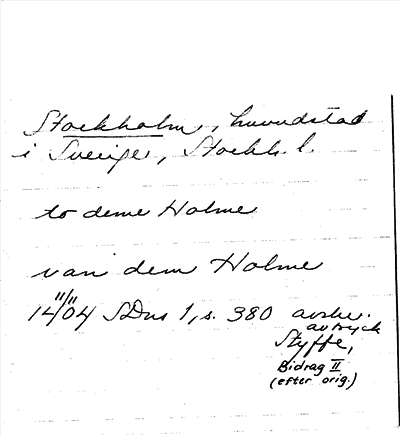 Stockholm, huvudstad
i Sverige, Stockh. l.
to deme Holme
van dem Holme
14 11/11 04 SDns 1, s. 380 avskr.
avtryck
Styffe,
Bidrag II
(efter orig.)